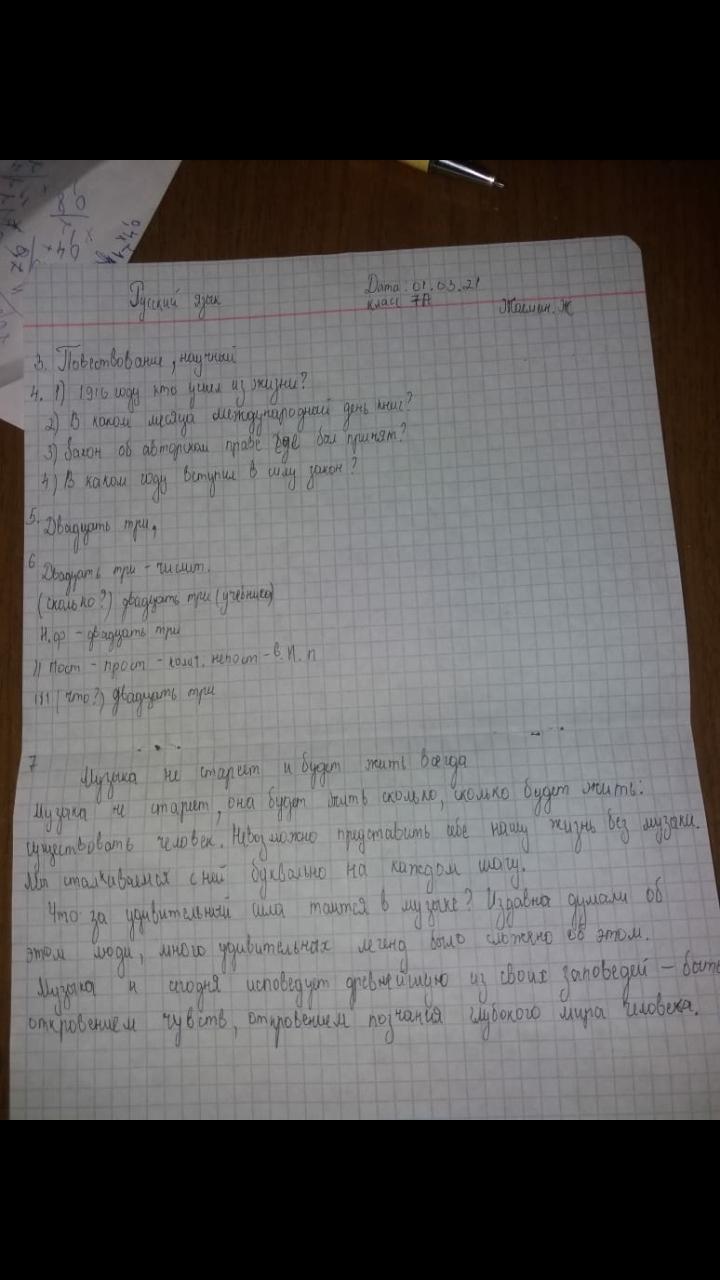 Русский язык
Дата: 01.03.21
класс 7А
Жасмин. Ж
3. Повествование, научный
4. 1) 1916 году кто ушел из жизни?
2) В каком месяца международный день книг?
3) Закон об авторском праве где был принят?
4) В каком году вступил в силу закон?
5. Двадцать три,
6 Двадцать три - числит.
(сколько?) двадцать три (учебника)
Н.ф - двадцать три
II Пост - прост - колич. непост - в. И. п
III (что?) двадцать три
7 Музыка не стареет и будет жить всегда
Музыка не стареет, она будет жить сколько, сколько будет жить:
существовать человек. Невозможно представить себе нашу жизнь без музыки.
Мы сталкиваемся с ней буквально на каждом шагу.
Что за удивительный сила таится в музыке? Издавна думали об
этом люди, много удивительных легенд было сложено об этом.
Музыка и сегодня исповедует древнейшую из своих заповедей – быть
откровением чувств, откровением познания глубокого мира человека.